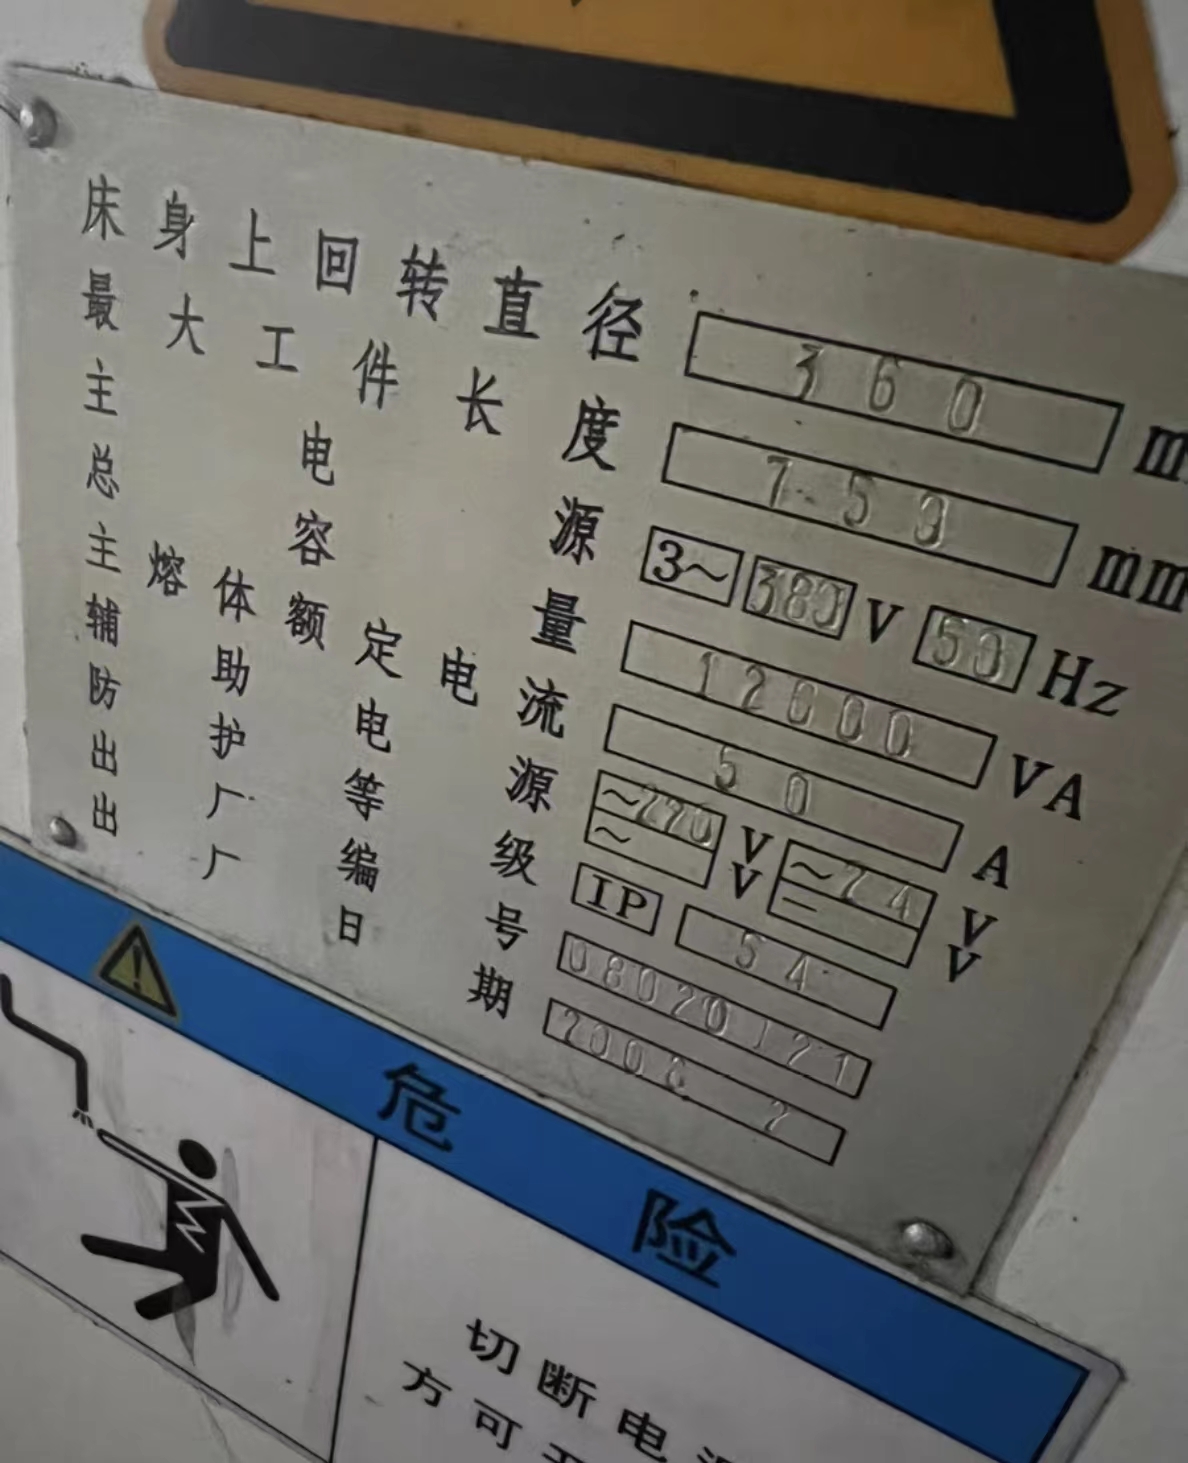 床身上回转直径 360 m
最大工件长度 750 mm
主电源 3~ 380 V 50 Hz
总容量 12000 VA
主熔体额定电流 50 A
辅助电源 ~220 V ~24 V
~ V = V
防护等级 IP 54
出厂编号 08020121
出厂日期 2008 2
危险
切断电源
方可